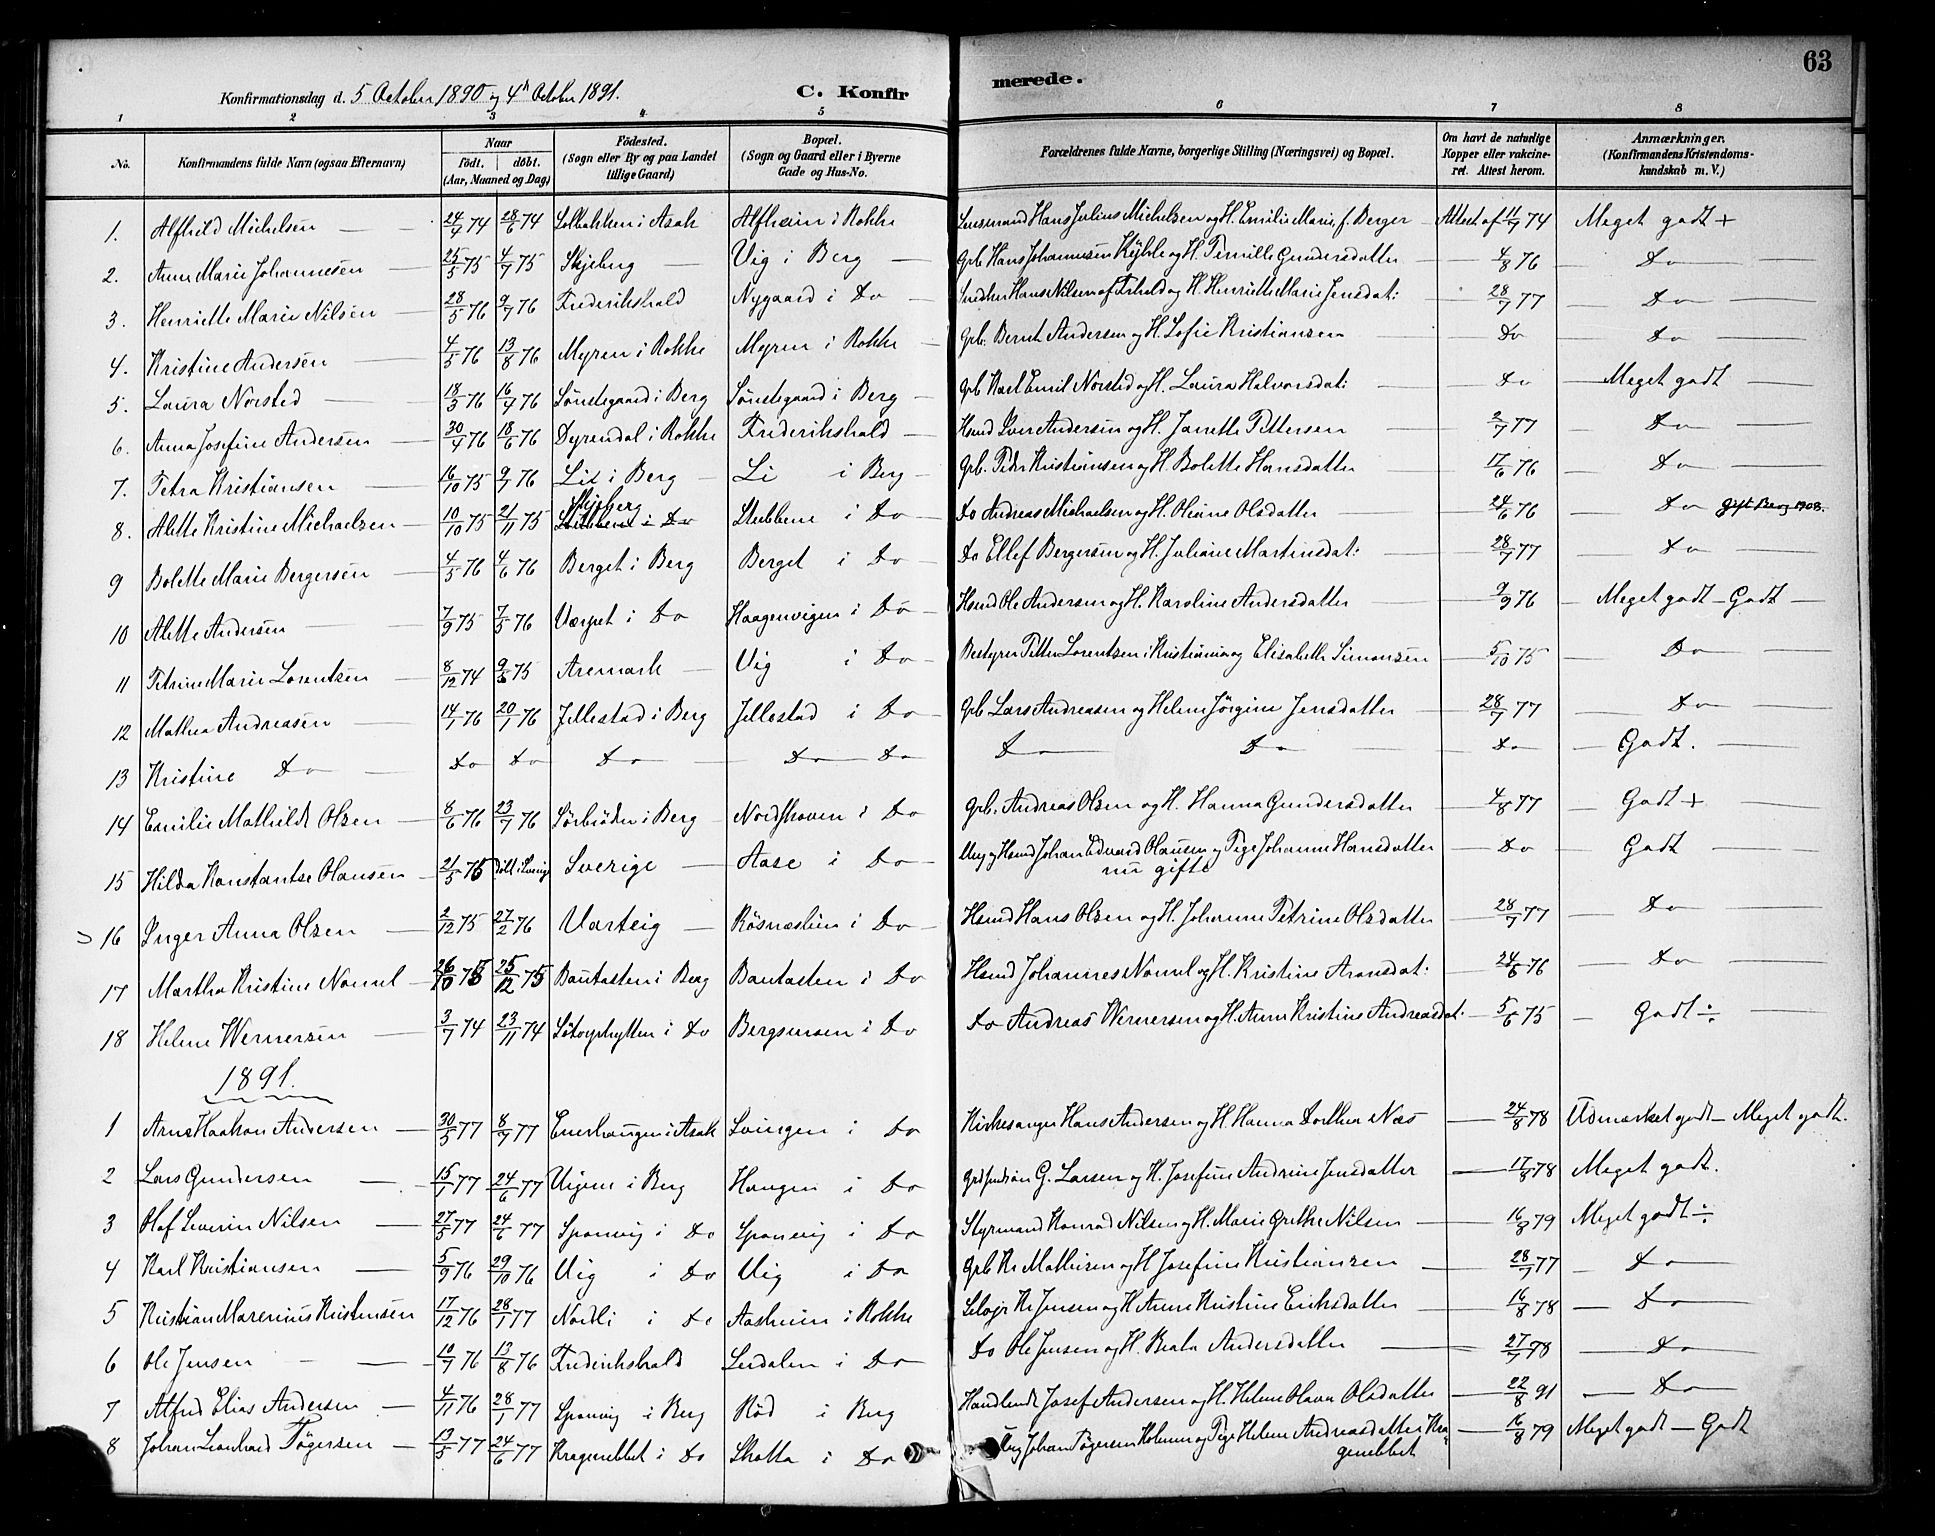 63
Konfirmationsdag d. 5 October 1890 og 4de October 1891.
C. Konfirmerede.
1 2 3 4 5 6 7 8
No. Konfirmandens fulde Navn (ogsaa Efternavn) Naar født. døbt. (Aar, Maaned og Dag) Fødested. (Sogn eller By og paa Landet tillige Gaard) Bopæl. (Sogn og Gaard eller i Byerne Gade og Hus-No. Forældrenes fulde Navne, borgerlige Stilling (Næringsvei) og Bopæl. Om havt de naturlige Kopper eller vakcineret. Attest herom. Anmærkninger. (Konfirmandens Kristendomskundskab m. V.)
1. Alfhild Michelsen 24/4 74 28/6 74 Solbakken i Asak Alfheim i Rokke Hans Julius Michelsen og H. Emilie Marie, f. Berger Attest af 11/9 74 Meget godt +
2. Anne Marie Johannesen 25/5 75 4/7 75 Skjeberg Vig i Berg Grb. Hans Johannesen og H. Pernille Gundersdatter 4/8 76 Do
3. Henriette Marie Nilsen 28/5 76 9/7 76 Frederikshald Nygaard i Do Snedker Hans Nilsen og H. Henriette Marie Jensdat: 28/7 77 Do
4. Kristine Andersen 4/5 76 13/8 76 Myren i Rokke Myren i Rokke Grb. Bernt Andersen og H. Sofie Kristiansen Do Do
5. Laura Norsted 18/3 76 16/4 76 Söndegaard i Berg Söndegaard i Berg Grb Karl Emil Norsted og H. Laura Halvorsdat: Do Meget godt
6. Anna Josefine Andersen 30/4 76 18/6 76 Dyrendal i Rokke Frederikshald Hsmd Iver Andersen og H. Janette Pettersen 2/7 77 Do
7. Petra Kristiansen 16/10 75 9/7 76 Li i Berg Li i Berg Grb. Peder Kristiansen og H. Bolette Hansdatter 17/6 76 Do
8. Alette Kristine Michaelsen 10/10 75 21/11 75 Skjeberg Stubbene i Do Stubbene i Do Do Andreas Michaelsen og H. Oliane Olsdatter 24/6 76 Do gift Berg 1908.
9 Bolette Marie Bergersen 4/5 76 4/6 76 Berget i Berg Berget i Do Do Ellef Bergersen og H. Juliane Martinsdat: 28/7 77 Do
10 Alette Andersen 7/9 75 7/5 76 Værpet i Do Haagenvigen i Do Hsmd Ole Andersen og H. Karoline Andersdatter 9/9 76 Meget godt - Godt
11 Petrine Marie Lorentsen 8/12 74 9/6 75 Aremark Vig i Do Bestyrer Petter Lorentsen i Kristiania og Elisabeth Simonsen 5/10 75 Do
12 Mathea Andreasen 14/1 76 20/1 76 Jellestad i Berg Jellestad i Do Grb Lars Andreasen og Helene Jörgine Jensdatter 28/7 77 Do
13 Kristine Do Do Do Do Do Do Do Do Do Godt.
14 Emilie Mathilde Olsen 8/6 76 23/7 76 Sörbröden i Berg Nordhoven i Do Grb. Andreas Olsen og H. Hanna Gundersdatter 4/8 77 Godt +
15 Hilda Konstantse Olausen 21/5 76 Döbt i Sverige Sverige Aase i Do Ung og Hsmd Johan Edvard Olausen og Pige Johanne Hansdatter Do Godt
nu gifte
16 Inger Anna Olsen 2/12 75 27/2 76 Varteig Rösnæslien i Do Hsmd Hans Olsen og H. Johanne Petrine Olsdatter 28/7 77 Do
17 Martha Kristine Nomel 26/10 75 25/12 75 Bautasten i Berg Bautasten i Do Hsmd Johannes Nomel og H. Kristine Aronsdat: 24/6 76 Do
18 Helene Wernersen 3/7 74 23/11 74 i Do Bergsensen i Do Do Andreas Wernersen og H. Anne Kristine Andreasdat. 5/6 75 Godt ÷
1891.
1 Arne Haakon Andersen 30/5 77 8/7 77 Enerhaugen i Asak Svingen i Do Kirkesanger Hans Andersen og H. Hanna Dorthea Næs 24/8 78 Udmærket godt - Meget godt.
2 Lars Gundersen 15/1 77 24/6 77 Vigene i Berg Haugen i Do G. Larsen og H. Josefine Andrine Jensdatter 17/8 78 Meget godt.
3 Olaf Severin Nilsen 27/5 77 24/6 77 Sponvig i Do Sponvig i Do Styrmand Konrad Nilsen og H. Marie Grethe Nilsen 16/8 79 Meget godt ÷
4 Karl Kristiansen 5/9 76 29/10 76 Vig i Do Vig i Do Grb Kr Mathisen og H Josefine Kristiansen 28/7 77 Do
5 Kristian Marenius Kristensen 17/12 76 28/1 77 Nordli i Do Aasheim i Rokke Selvejer Kr Jensen og H Anne Kristine Eriksdatter 16/8 78 Do
6 Ole Jensen 10/7 76 13/8 76 Frederikshald Lerdalen i Do Do Ole Jensen og H. Beata Andersdatter 27/7 78 Do
7 Alfred Elias Andersen 4/11 76 28/1 77 Sponvig i Berg Röd i Berg Handlende Josef Andersen og H. Helene Olava Olsdatter 22/8 91 Do
8 Johan Leonhard Tögersen 13/5 77 24/6 77 Kragenebbet i Do Skotta i Do Ung Johan Tögersen Holmen og Pige Helene Andreasdatter Kra- 16/8 79 Meget godt - Godt
genebbet